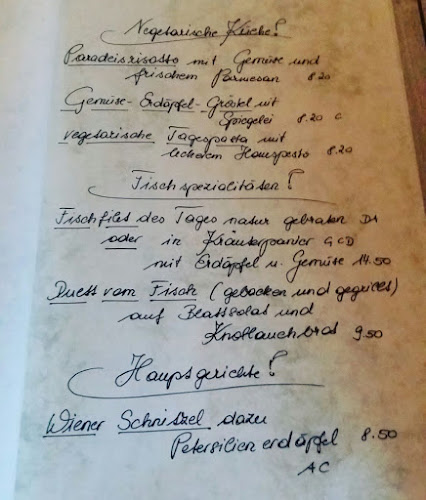 Vegetarische Küche!
Paradeisrisotto mit Gemüse und
frischem Parmesan 8.20
Gemüse-Erdäpfel-Gröstel mit
Spiegelei 8.20 C
vegetarische Tagespasta mit
leckerem Hauspesto 8.20
Fischspezialitäten!
Fischfilet des Tages natur gebraten DA
oder in Kräuterpanier GCD
mit Erdäpfel u. Gemüse 14.50
Duett vom Fisch (gebacken und gegrillt)
auf Blattsalat und
Knoblauchbrot 9.50
Hauptgerichte!
Wiener Schnitzel dazu
Petersilienerdäpfel 8.50
AC